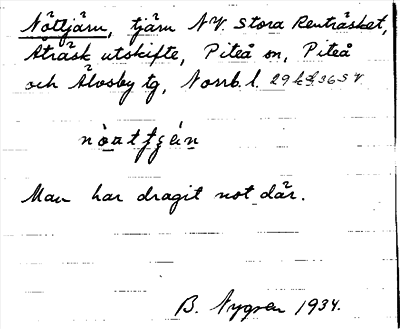 Nöttjärn, tjärn NV. Stora Renträsket,
Åträsk utskifte, Piteå sn, Piteå
och Älvsby tg, Norrb. l.
Man har dragit not där.
B. Nygren 1934.